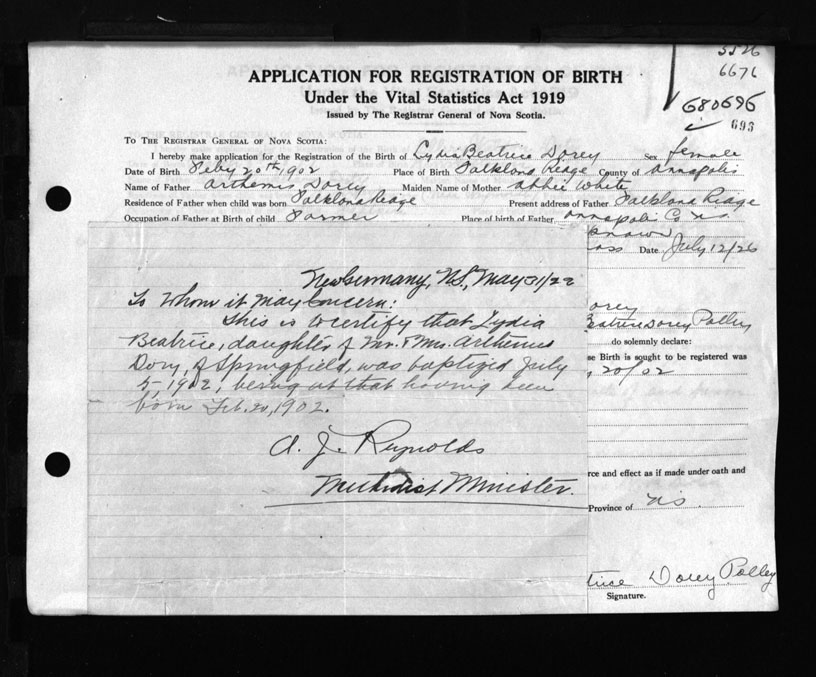 5526
6676
680696
693
APPLICATION FOR REGISTRATION OF BIRTH
Under the Vital Statistics Act 1919
Issued by The Registrar General of Nova Scotia.
To The Registrar General of Nova Scotia:
I hereby make application for the Registration of the Birth of Lydia Beatrice Dorey Sex female
Date of Birth Feby 20th 1902 Place of Birth Falkland Ridge County of Annapolis
Name of Father Arthemis Dorey Maiden Name of Mother Abbie White
Residence of Father when child was born Falkland Ridge Present address of Father Falkland Ridge
Occupation of Father at Birth of child Farmer Place of birth of Father Annapolis Co NS
Date July 12/26
New Germany, N.S., May 31/22
To Whom it may Concern:
This is to certify that Lydia
Beatrice, daughter of Mr. & Mrs. Arthemus
Dory, of Springfield, was baptized July
5, 1902, being at that having been
born Feb. 20, 1902.
A. J. Reynolds
Methodist Minister.
orey
Beatrice Dorey Polley
do solemnly declare:
se Birth is sought to be registered was
, 20/02
rce and effect as if made under oath and
Province of NS.
trice Dorey Polley
Signature.